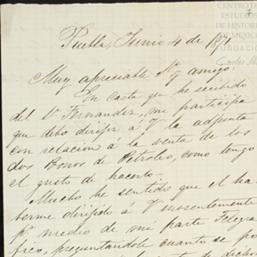 CENTRO DE
ESTUDIOS
DE HISTORIA
DE MÉXICO
FUNDACIÓN
Carlos
Puebla, Junio 4 de 187
Muy apreciable Sr. y amigo.
En carta que he recibido
del Sr Fernandez, me participa
que debo dirijir á V la adjunta
con relación á la venta de los
dos Bonos de Petroleo, como tengo
el gusto de hacerlo.
Mucho he sentido que el ha
berme dirijido á V
pr medio de mi parte Telegra
fico, preguntandole cuanto se po